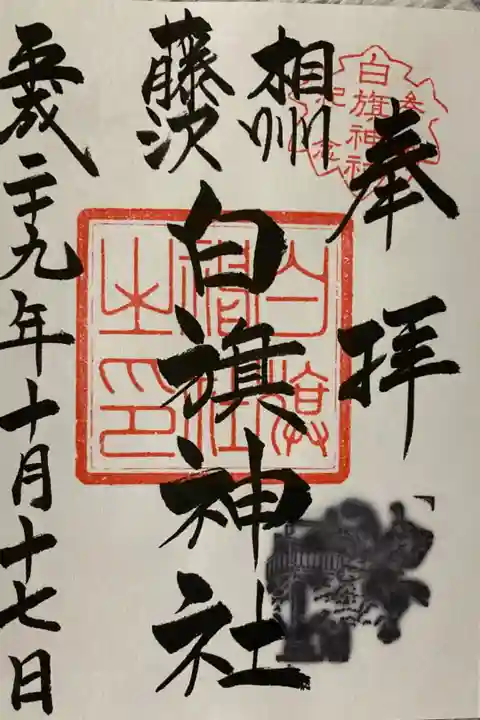 奉拝
白旗神社
相州
藤沢
白旗神社
白旗神社之印
平成二十九年十月十七日